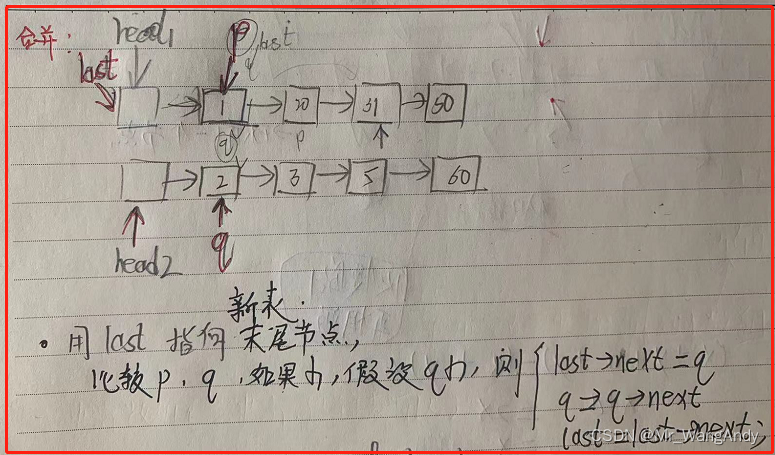 合并:
head1
last
p
last
q
1 20 31 50
q
p
2 3 5 60
head2
q
新表.
• 用 last 指向 末尾节点,
比较 p, q, 如果小, 假设 q小, 则
last→next = q
q = q→next
last = last→next;
CSDN @Mr_WangAndy